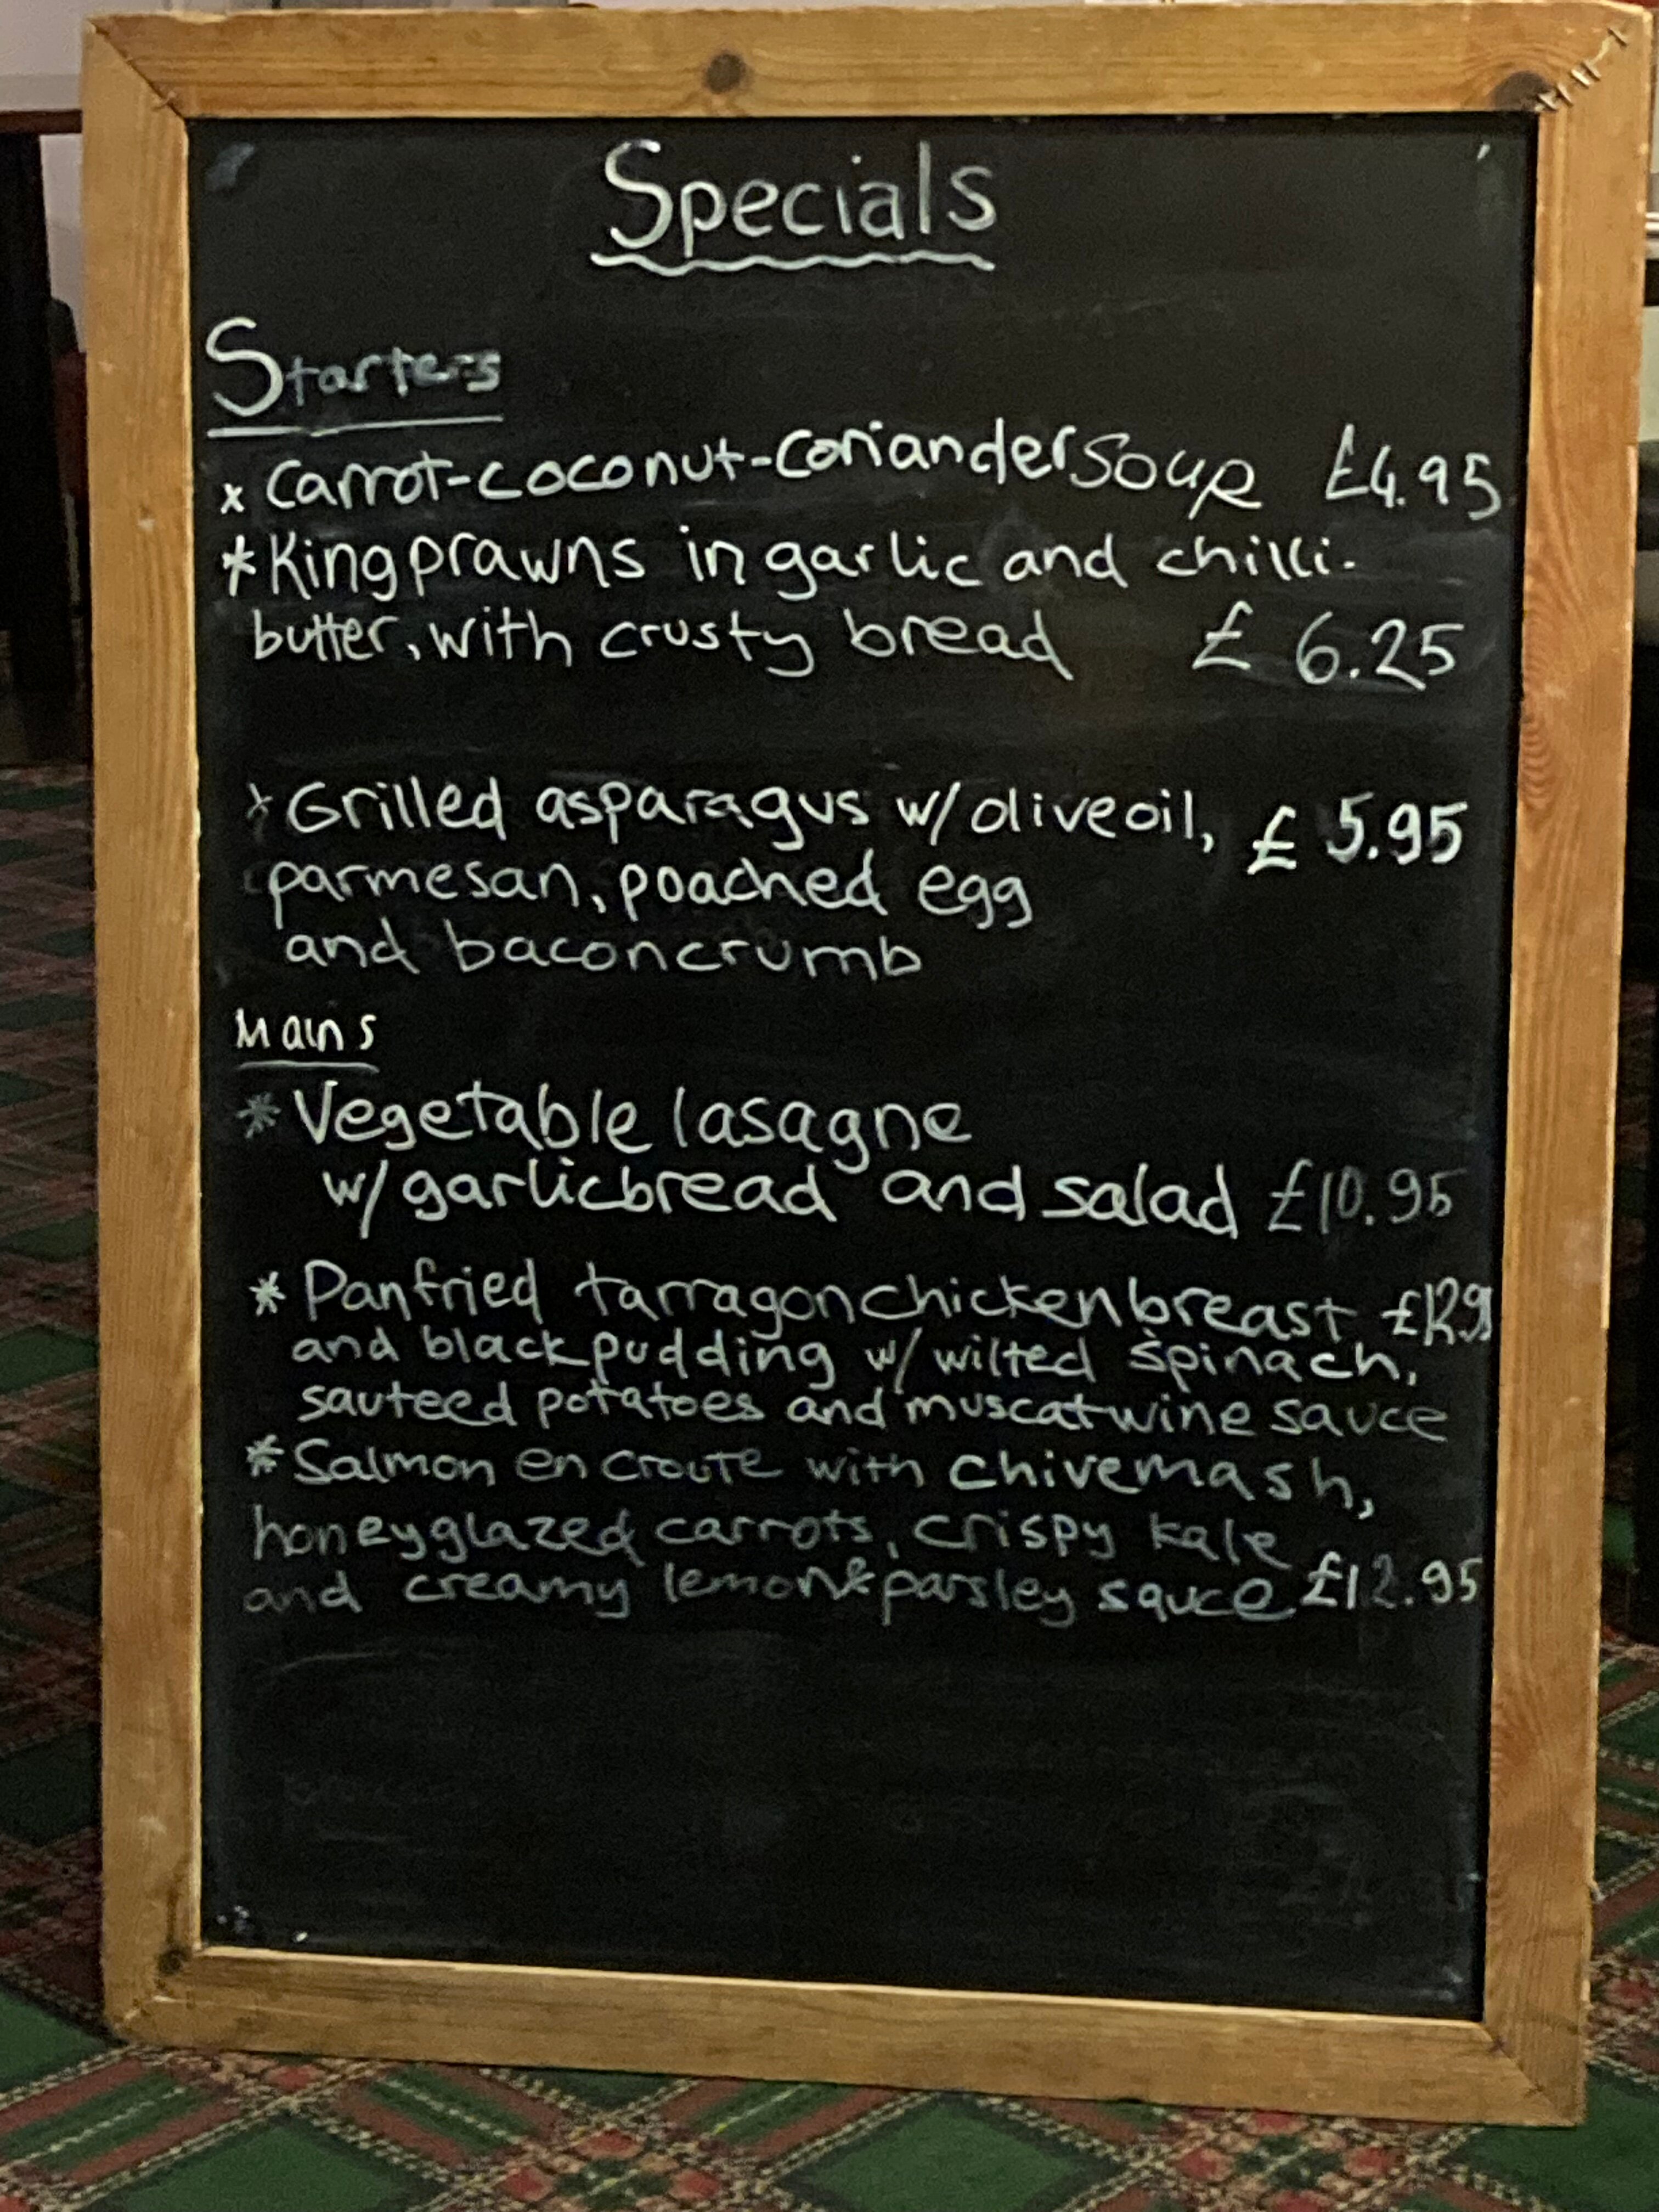 Specials
Starters
x Carrot-coconut-coriander soup £4.95
* King prawns in garlic and chilli-
butter, with crusty bread £ 6.25
x Grilled asparagus w/ olive oil, £ 5.95
parmesan, poached egg
and baconcrumb
Mains
* Vegetable lasagne
w/ garlicbread and salad £10.95
* Panfried tarragon chicken breast £12.9
and black pudding w/ wilted spinach,
sauteed potatoes and muscatwine sauce
* Salmon en croute with chivemash,
honeyglazed carrots, crispy kale
and creamy lemon & parsley sauce £12.95